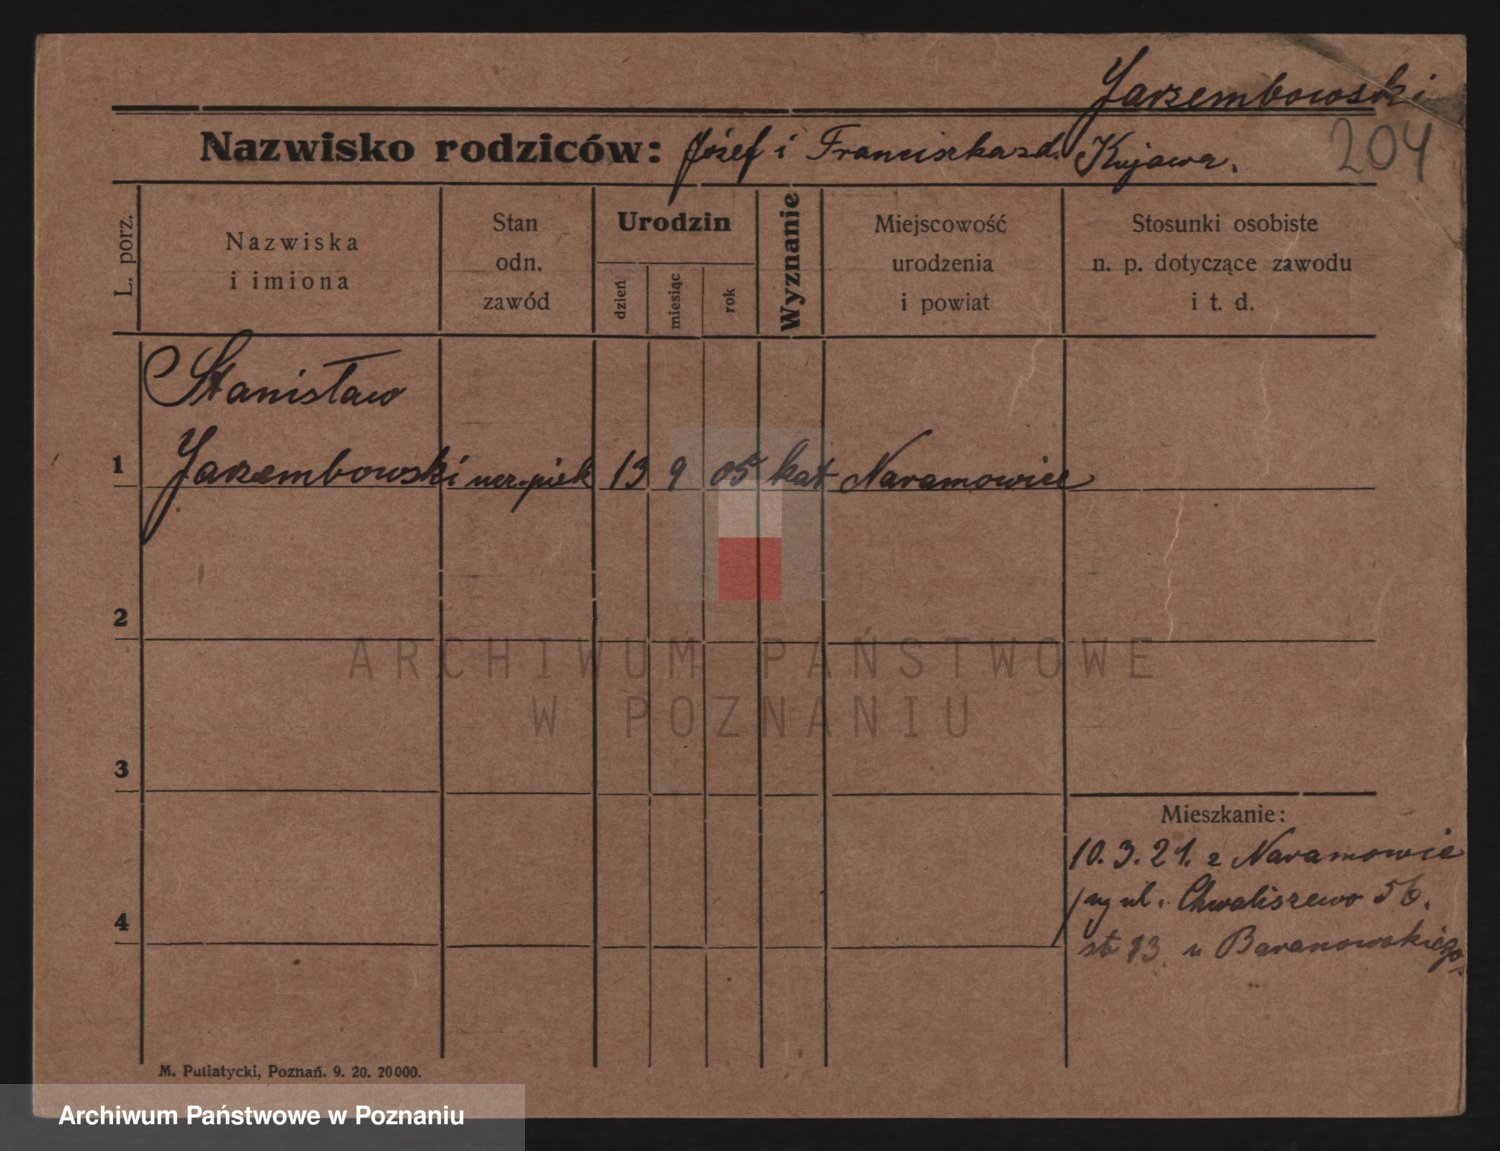 Jarzembowski
204
Nazwisko rodziców: Józef i Franciszka zd. Kujawa.
L. porz.
Nazwiska
i imiona
Stan
odn.
zawód
Urodzin
dzień
miesiąc
rok
Wyznanie
Miejscowość
urodzenia
i powiat
Stosunki osobiste
n. p. dotyczące zawodu
i t. d.
Stanisław
1 Jarzembowski ucz. piek 13 9 05 kat Naramowice
2
ARCHIWUM PAŃSTWOWE
W POZNANIU
3
Mieszkanie:
10. 3. 21. z Naramowic
ul. Chwaliszewo 56.
u Baranowskiego.
4
M. Putiatycki, Poznań. 9. 20. 20000.
Archiwum Państwowe w Poznaniu